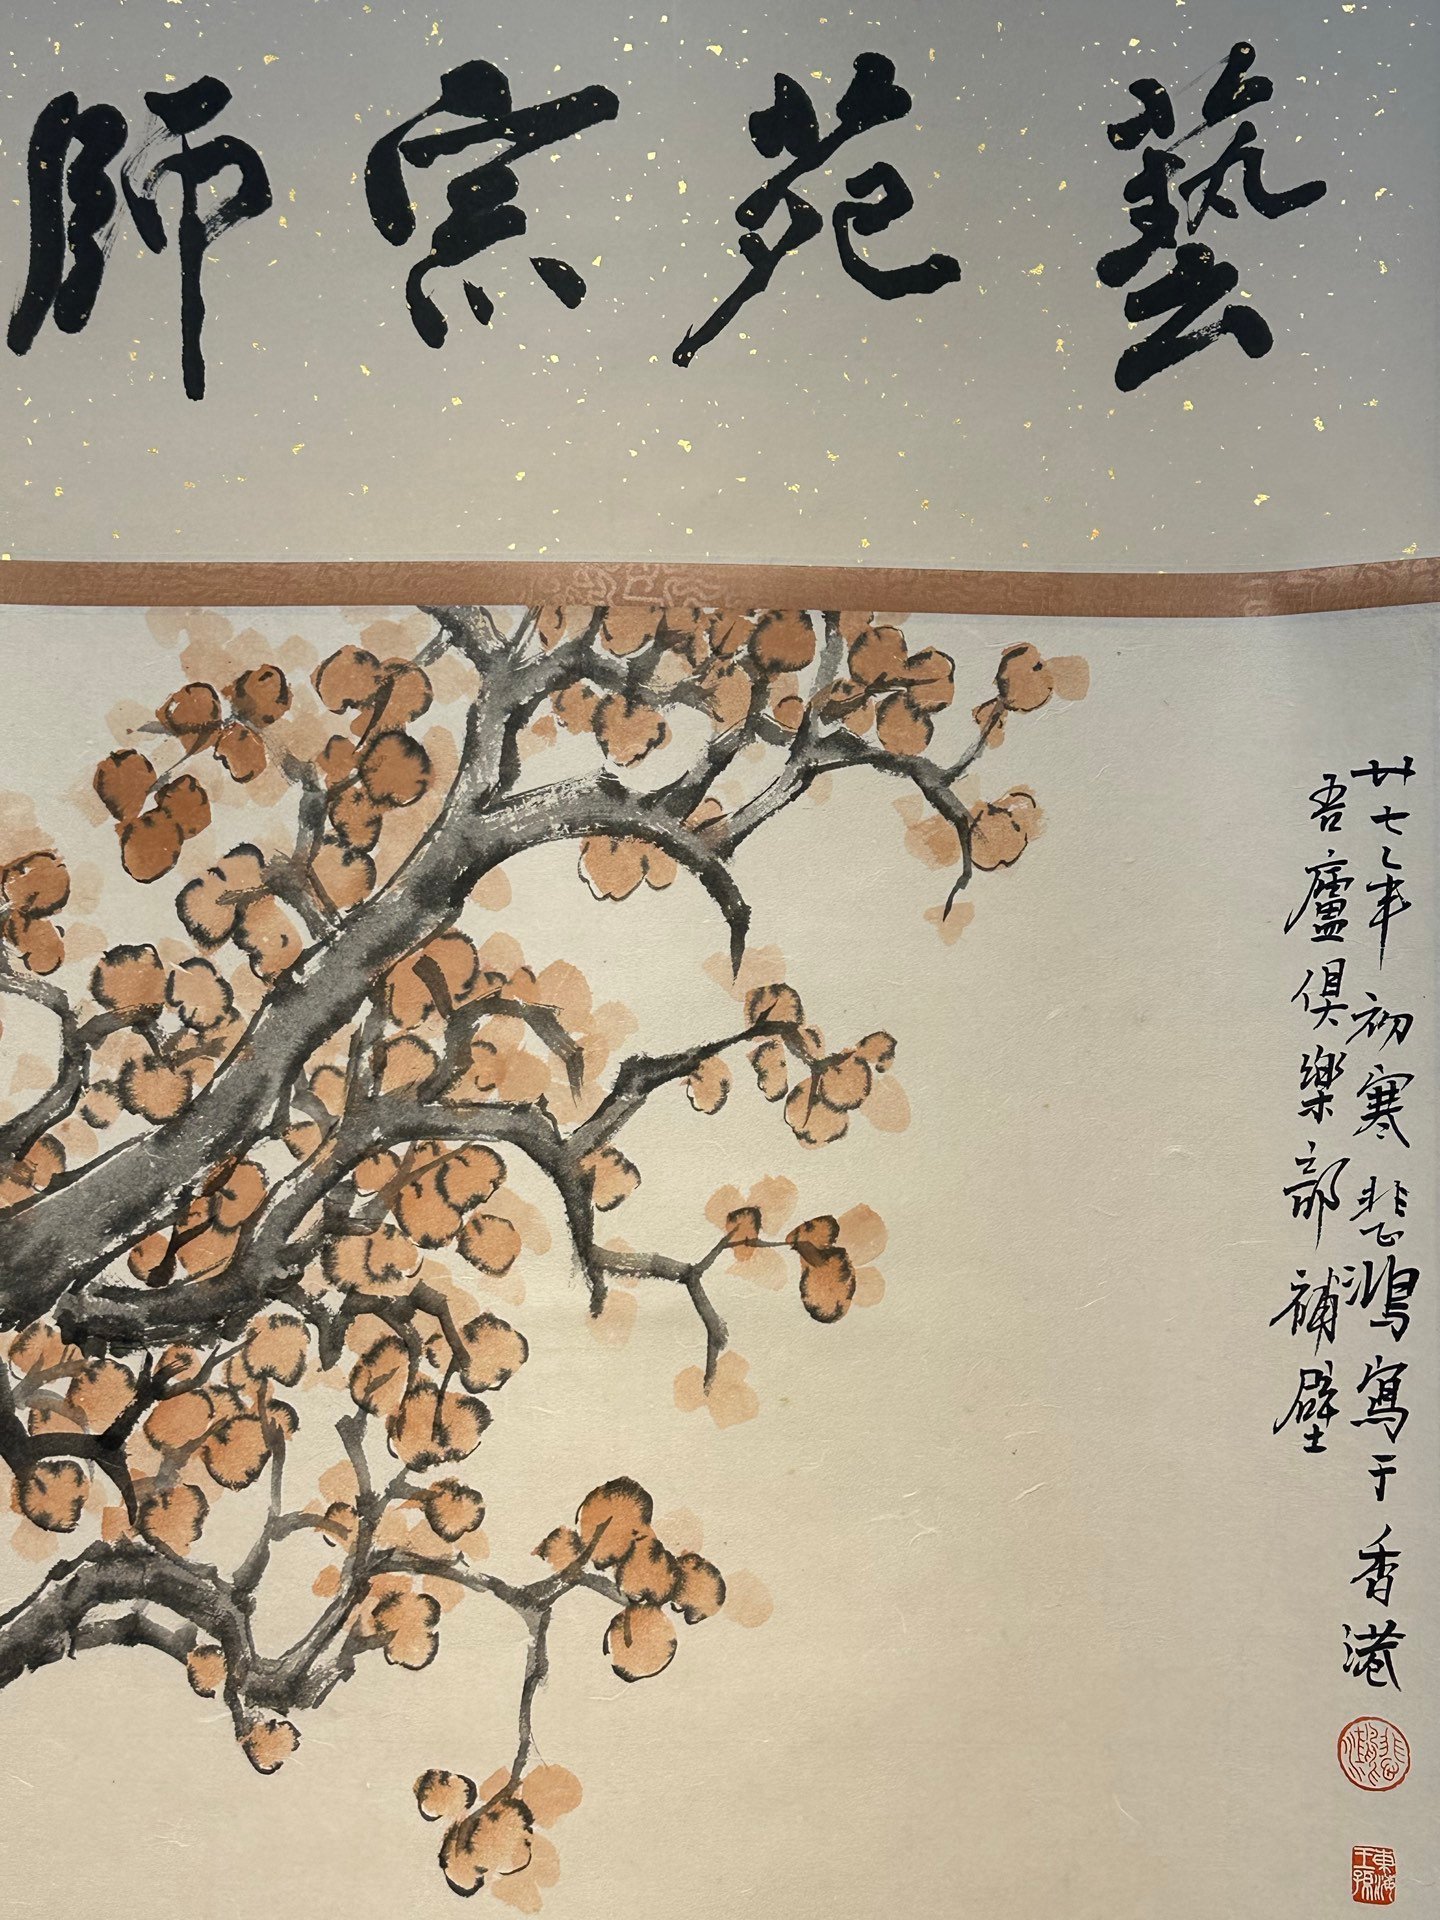 藝苑宗師
廿七年初寒悲鴻寫于香港
吾廬俱樂部補壁
悲鴻
東海王孫